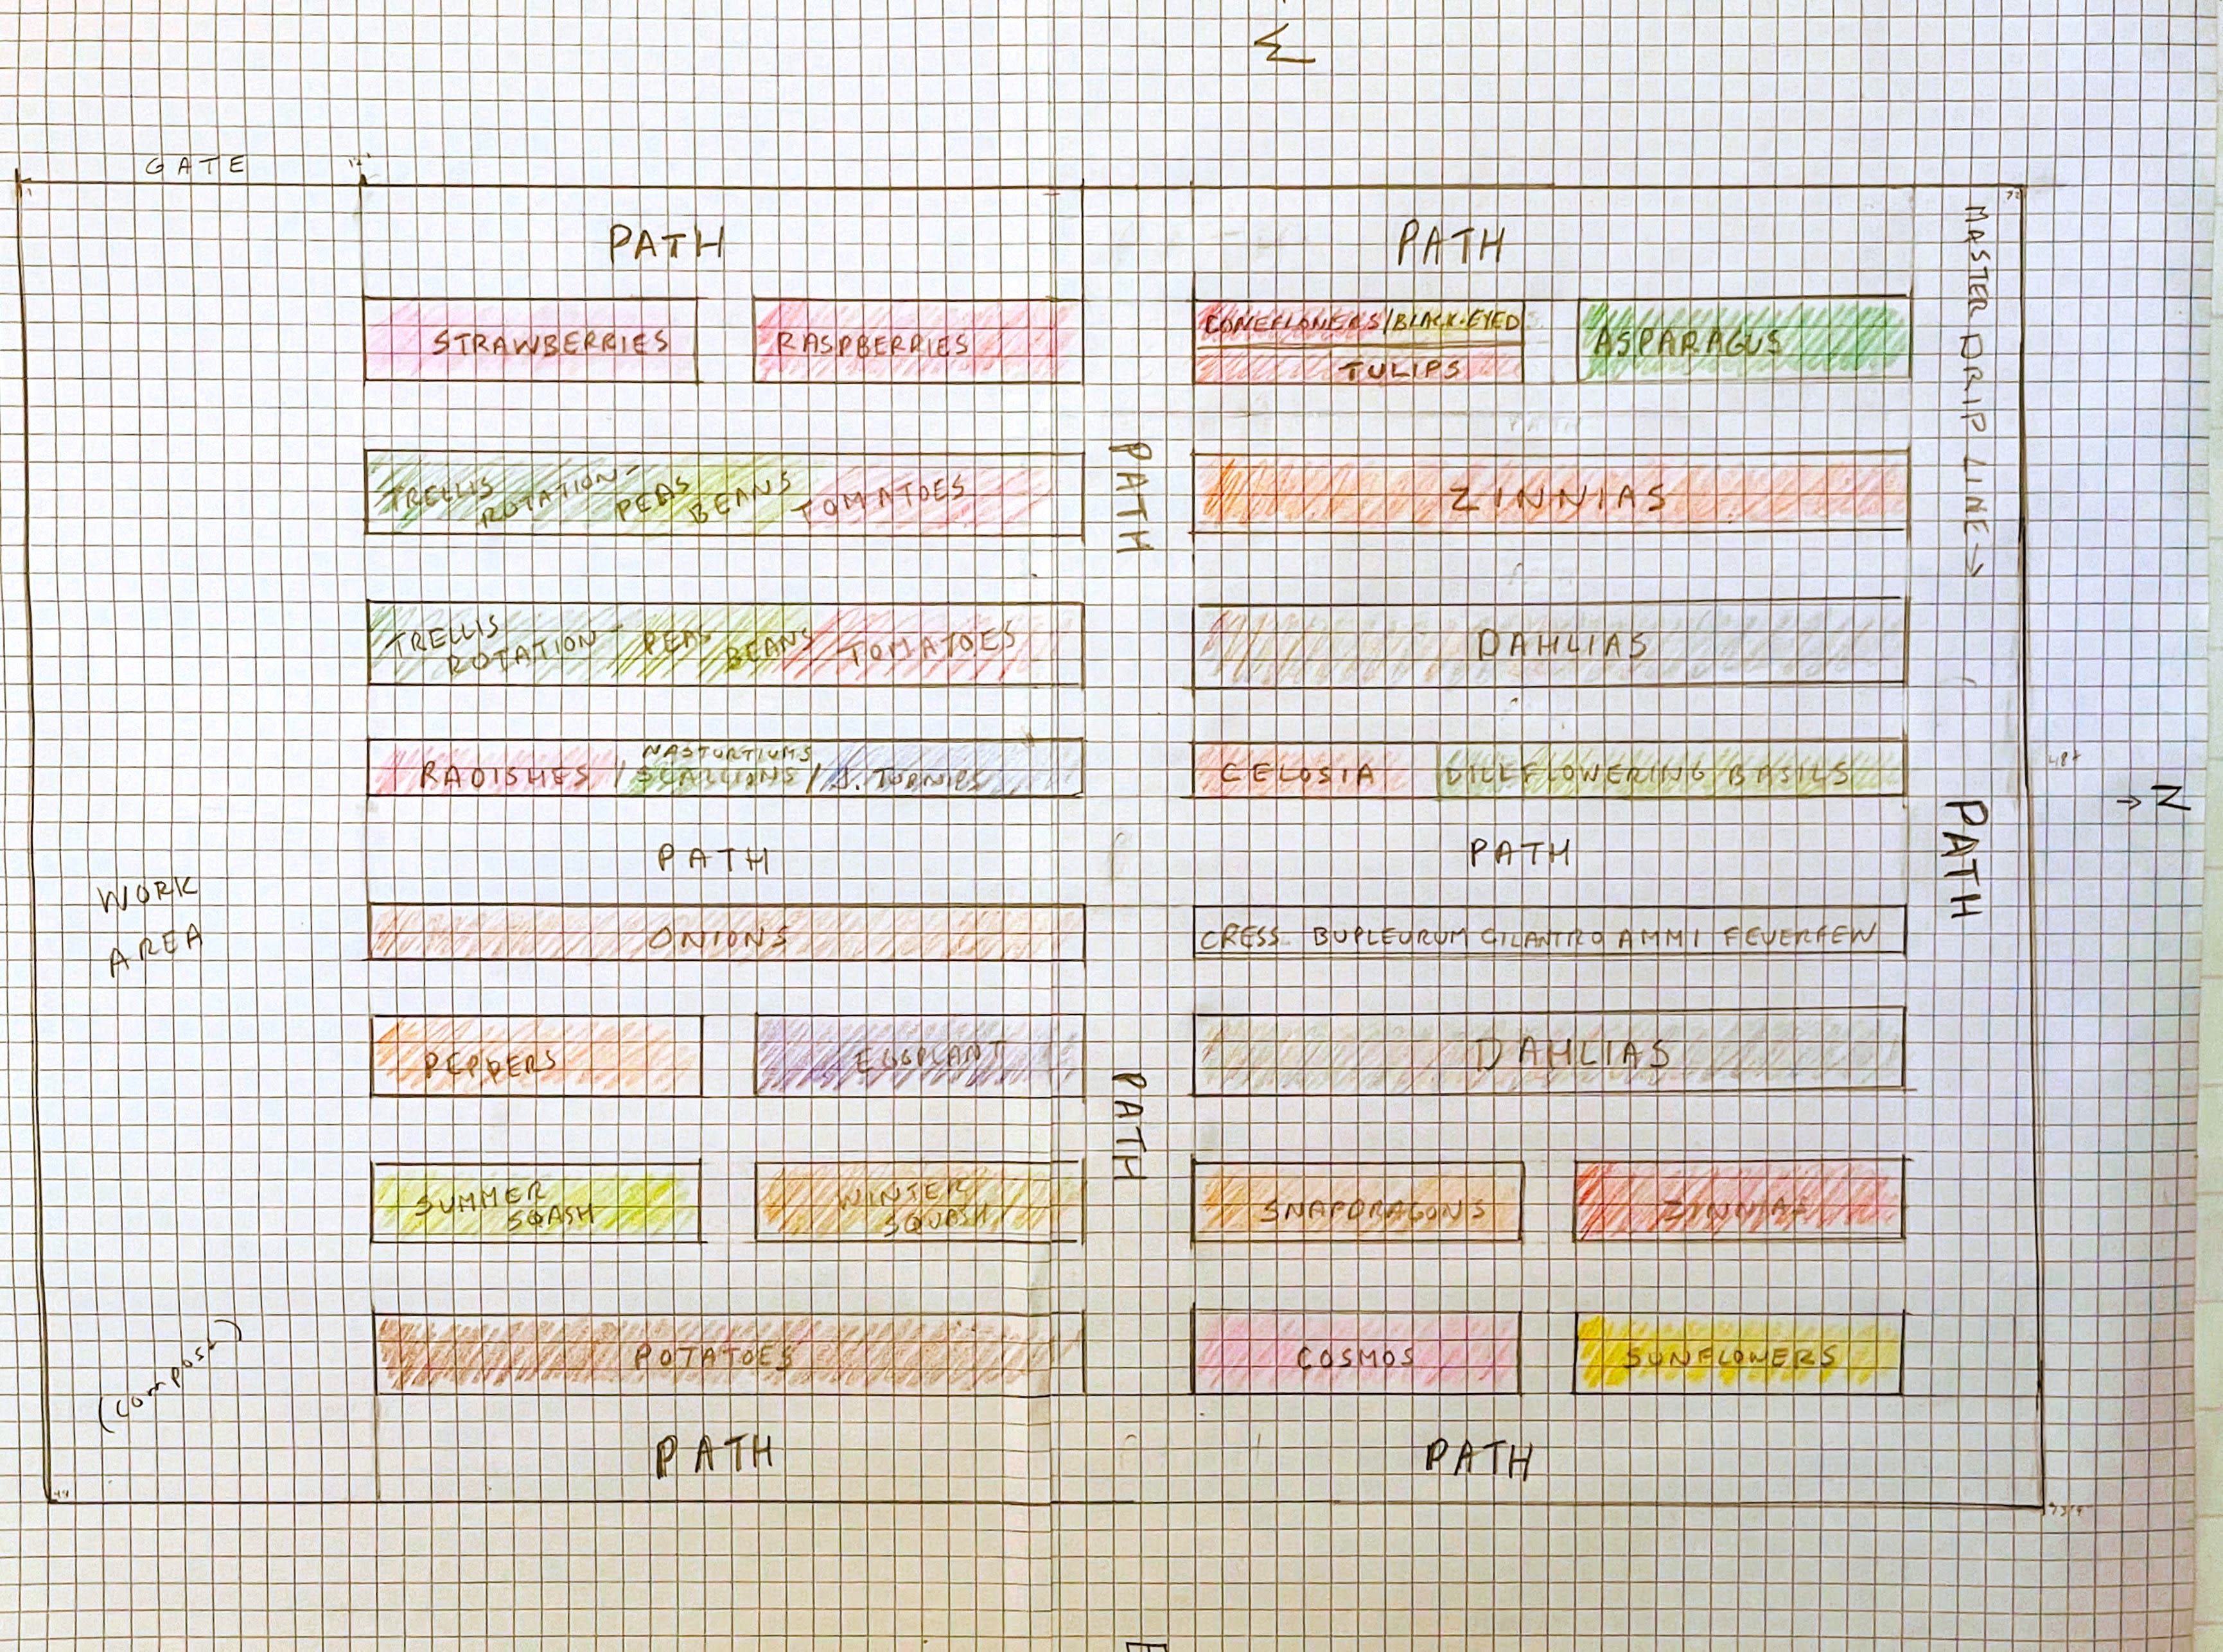 W
GATE
12'
PATH
PATH
MASTER DRIP LINE →
STRAWBERRIES
RASPBERRIES
CONEFLOWERS/BLACK-EYED
TULIPS
ASPARAGUS
PATH
TRELLIS ROTATION- PEAS BEANS TOMATOES
ZINNIAS
TRELLIS ROTATION- PEAS BEANS TOMATOES
DAHLIAS
NASTURTIUMS
RADISHES / SCALLIONS / J. TURNIPS
CELOSIA
DILL FLOWERING BASILS
→ Z
PATH
PATH
PATH
WORK
AREA
ONIONS
CRESS BUPLEURUM CILANTRO AMMI FEVERFEW
PEPPERS
EGGPLANT
DAHLIAS
PATH
SUMMER
SQASH
WINTER
SQUASH
SNAPDRAGONS
ZINNIAS
(compost)
POTATOES
COSMOS
SUNFLOWERS
PATH
PATH
44
E